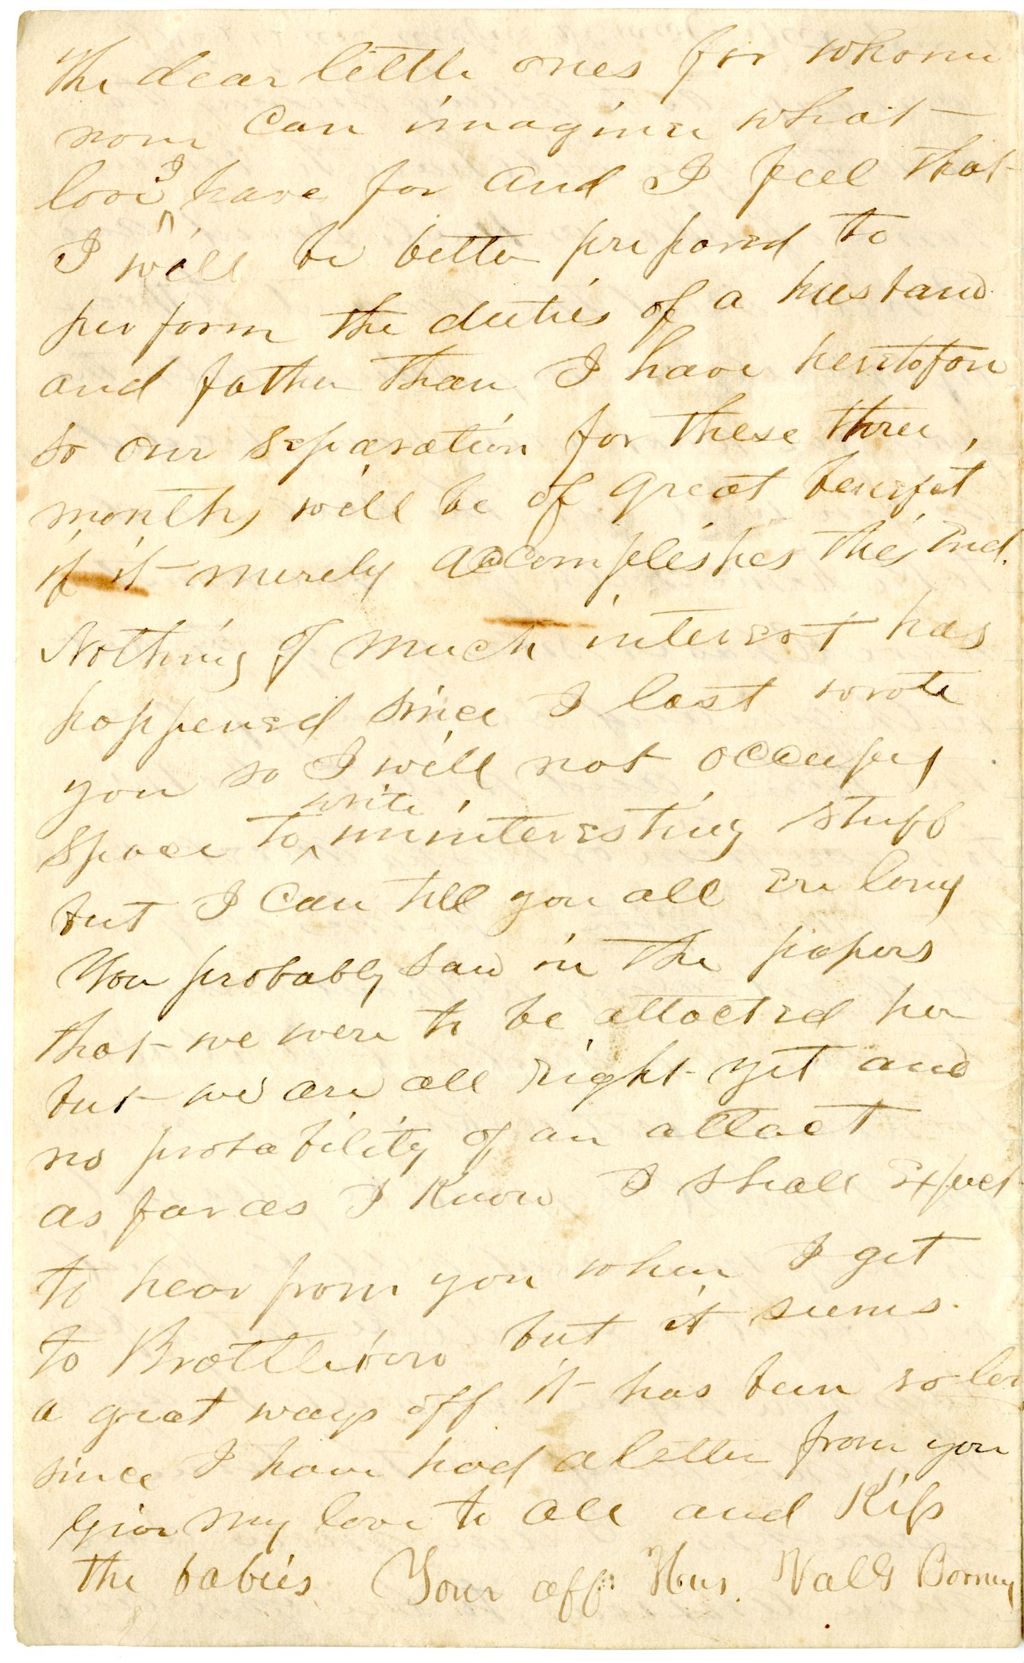 the dear little ones for whom
none can imagine what
love I have for and I feel that
I will be better prepared to
perform the duties of a husband
and father than I have heretofore
so our separation for these three,
months will be of great benefit
if it merely accomplishes this End.
Nothing of much interest has
happened since I last wrote
you so I will not occupy
space to write uninteresting stuff
but I can tell you all ere long
You probably saw in the papers
that we were to be attacted here
but we are all right yet and
no probability of an attact
as far as I know I shall Expect
to hear from you when I get
to Brattleboro but it seems
a great ways off it has been so long
since I have had a letter from you
Give my love to all and Kiss
the babies. Your aff. Hus. Val G Barney